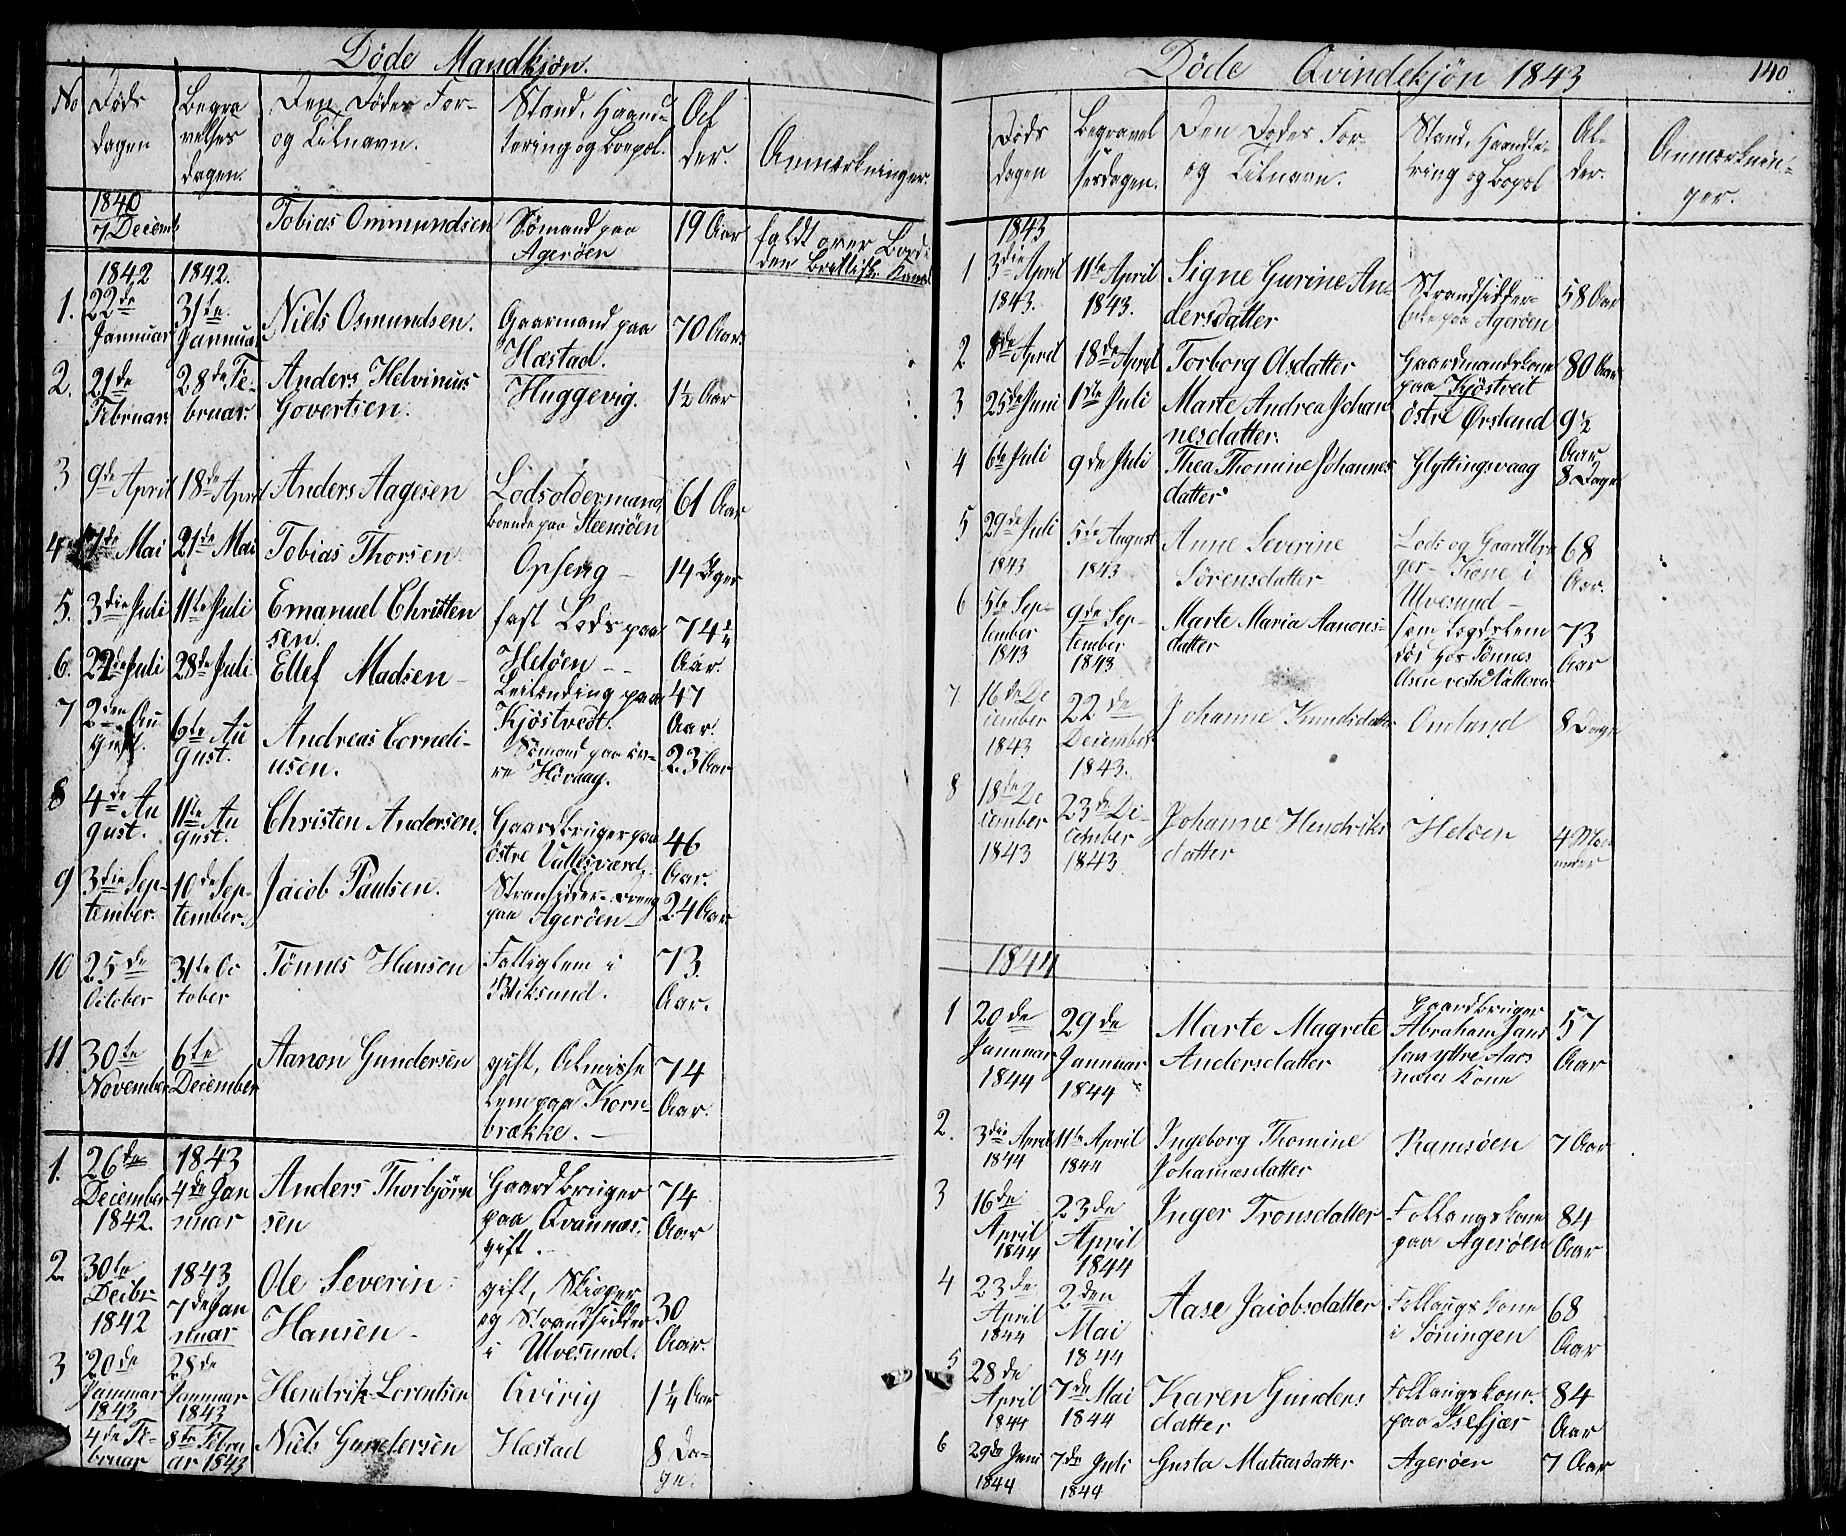 Døde Mandkjøn.
No
Døds
dagen
Begra
velses
dagen.
Den Dødes For-
og Tilnavn.
Stand, Haand-
tering og Bopæl.
Al
der.
Anmærkninger.
1840
7 Decemb
Tobias Ommundsen
Sømand paa
Agerøen
19 Aar
faldt over Bord i
den Brittiske Kanal
1842
1842.
1.
22de
Januuar
31te
Januuar
Niels Osmundsen.
Gaarmand paa
Hæstad.
70 Aar.
2.
21de
Februar.
28de Fe-
bruar.
Anders Helvinius
Govertsen.
Huggevig.
1½ Aar
3
9de April
18de April
Anders Aagesen
Lodsoldermand,
boende paa Steensøen
61 Aar
4
Mai
21de Mai
Tobias Thorsen
14 Uger
5.
3die Juli
11te Juli
Emanuel Christen
sen.
fast Lods paa
Heløen --
74¼
Aar.
6.
22de Juli
28de Juli
Ellef Madsen -
Leilænding paa
Kjøstvedt.
47
Aar.
7
2den Au
gust.
6te Au
gust.
Andreas Corneli-
usen.
Sømand paa øv-
re Høvaag.
23 Aar
8
4de Au
gust.
11te Au
gust.
Christen Andersen.
Gaardbruger paa
østre Vallesværd.
46
Aar.
9
3die Sep-
tember.
10de Sep-
tember.
Jacob Paulsen.
Strandsidder-Dreng
paa Agerøen -
24 Aar
10
25de
October
31te Oc
tober
Tønnes Hansen
Fattiglem i
Bliksund.
73
Aar.
11
30te
November
6te
December
Aanon Gundersen
gift, Almisse
lem paa Korn-
brække. -
74
Aar.
1.
26de
December
1842.
1843
4de Jan
nuar
Anders Thorbjørn
sen
Gaardbruger
paa Qvannæs.
gift.
74
Aar
2.
30te
Decbr
1842
1843
7de Jan
nuar
Ole Severin
Hansen -
gift, Skipper
og Strandsidder
i Ulvesund.
30
Aar.
3
20de
Januuar
1843
28de
Januuar
1843
Hendrik Lorentsen
Qvivig
1¼ Aar
4de Fe-
bruar
8de Febru
ar 1843
Niels Gundersen
Hæstad
8 Da-
ge.
Døde Qvindekjøn 1843
140.
Døds
dagen
Begravel
sesdagen.
Den Dødes For-
og Tilnavn.
Stand, Haandte-
ring og Bopæl
Al-
der.
Anmærknin-
ger.
1843
1
3die April
1843.
11te April
1843.
Signe Gurine An-
dersdatter
Strandsidder-
Enke paa Agerøen
58 Aar
2
8de April
18de April
Torborg Olsdatter
Gaardmandskone
paa Kjøstveit
80 Aar
3
25de Juni
1ste Juli
Marte Andrea Johan
nesdatter.
østre Ørsland
9½
Aar
4
6te Juli
9de Juli
Thea Thomine Johannes
datter
Glyttingsvaag
8 Dage
5
29de Juli
1843
5te August
1843
Anne Severine
Sørensdatter
Lods og Gaardbru
ger-Kone i
Ulvesund -
68
Aar.
6
5te Sep-
tember
1843
9de Sep-
tember
1843
Marte Maria Aanons-
datter
som Legdslem
død hos Tønnes
Olsen vestre Valleværd
73
Aar
7
16de De
cember
1843
22de
December
1843.
Johanne Knudsdatter
Omland
8 Dage
8
18de De
cember
1843
23de De-
cember
1843.
Johanne Hendriks
datter
Heløen
4 Maa
neder
1844
1
20de
Januuar
1844
29de
Januuar
1844
Marte Magrete
Andersdatter
Gaardbruger
Abraham Jans
sen yttre Aars
næses Kone
57
Aar
2.
3die April
1844
11te April
1844
Ingeborg Thomine
Johannesdatter
Ramsøen
7 Aar
3
16de
April
1844
23de
April
1844
Inger Tronsdatter
Follaugskone
paa Agerøen
84
Aar
4
23de
April
1844
2den
Mai
1844
Aase Jacobsdatter
Follaugs Kone
i Søningen
68
Aar
5
28de
April
1844
7de Mai
1844
Karen Gunders
datter
Follaugskone.
paa Isefjær
84
Aar
6
29de Juni
1844
7de Juli
1844
Gusta Matiasdatter
Agerøen
7 Aar